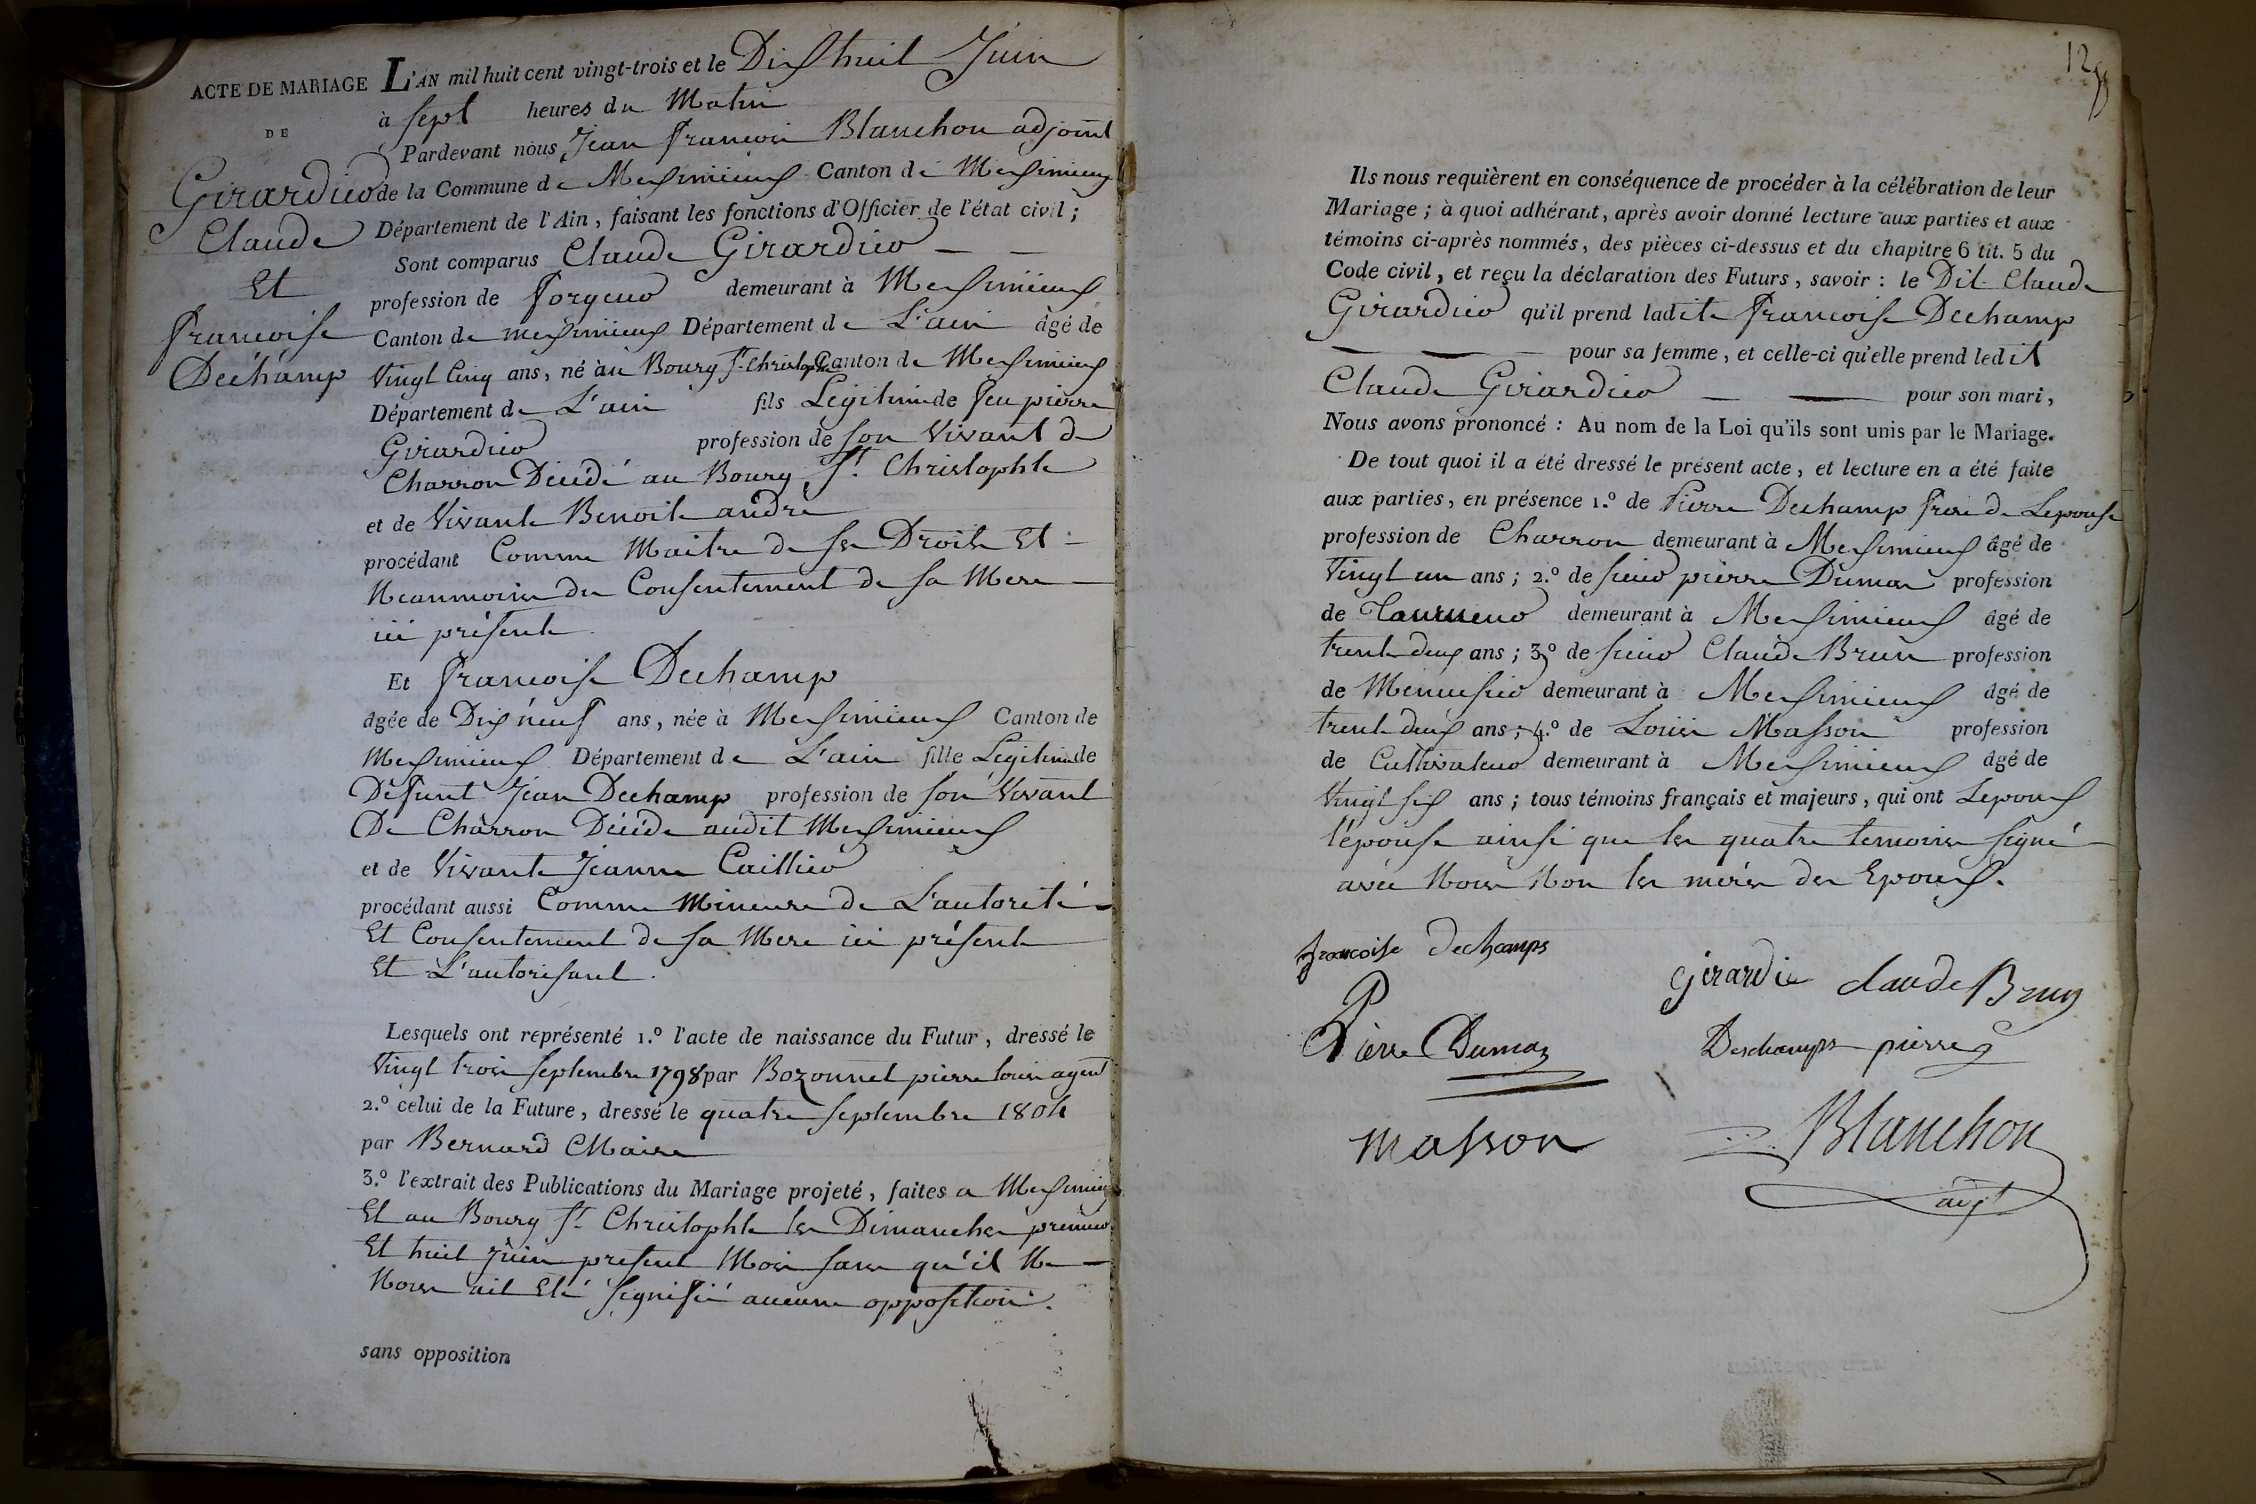 ACTE DE MARIAGE
DE
Girardier
Claude
Et
francoise
Dechamp
L'AN mil huit cent vingt-trois et le Dix huit Juin
à sept heures du Matin
Pardevant nous Jean francois Blanchon adjoint
de la Commune de Meximieux Canton de Meximieux
Département de l'Ain, faisant les fonctions d'Officier de l'état civil;
Sont comparus Claude Girardier
profession de forgeur demeurant à Meximieux
Canton de meximieux Département de L'ain âgé de
Vingt Cinq ans, né au Bourg St. Christophe Canton de Meximieux
Département de L'ain fils Légitime de feu pierre
Girardier profession de son Vivant de
Charron Décédé au Bourg St. Christophle
et de Vivante Benoite andré
procédant Comme Maitre de ses Droits Et
Neanmoins du Consentement de sa Mere
ici présente
Et francoise Dechamp
âgée de Dix neuf ans, née à Meximieux Canton de
Meximieux Département de L'ain fille Legitime de
Défunt Jean Dechamp profession de son Vivant
De Charron Décédé audit Meximieux
et de Vivante Jeanne Caillier
procédant aussi Comme Mineure de L'autorité
Et Consentement de sa Mere ici présente
Et L'autorisant.
Lesquels ont représenté 1.º l'acte de naissance du Futur, dressé le
Vingt trois septembre 1798 par Bozonnet pierre louis agent
2.º celui de la Future, dressé le quatre septembre 1804
par Bernard Maire
3.º l'extrait des Publications du Mariage projeté, faites a Meximieux
Et au Bourg St. Christophle les Dimanches premier
Et huit Juin present Mois sans qu'il Ne
Nous ait Eté signifié aucune opposition.
sans opposition
12
Ils nous requièrent en conséquence de procéder à la célébration de leur
Mariage; à quoi adhérant, après avoir donné lecture aux parties et aux
témoins ci-après nommés, des pièces ci-dessus et du chapitre 6 tit. 5 du
Code civil, et reçu la déclaration des Futurs, savoir: le Dit Claude
Girardier qu'il prend ladite francoise Dechamp
pour sa femme, et celle-ci qu'elle prend ledit
Claude Girardier pour son mari,
Nous avons prononcé: Au nom de la Loi qu'ils sont unis par le Mariage.
De tout quoi il a été dressé le présent acte, et lecture en a été faite
aux parties, en présence 1.º de Pierre Dechamp frere de Lepouse
profession de Charron demeurant à Meximieux âgé de
Vingt un ans; 2.º de sieur pierre Dumas profession
de Tourneur demeurant à Meximieux âgé de
trente deux ans; 3.º de sieur Claude Brun profession
de Menuisier demeurant à Meximieux âgé de
trente deux ans; 4.º de Louis Masson profession
de Cultivateur demeurant à Meximieux âgé de
Vingt six ans; tous témoins français et majeurs, qui ont Lepoux
l'épouse ainsi que les quatre temoins signé
avec Nous Non les mères des Epoux.
francoise dechamps
Girardie
claude Brun
Pierre Dumaz
Deschamps pierre
masson
Blanchon
adjt